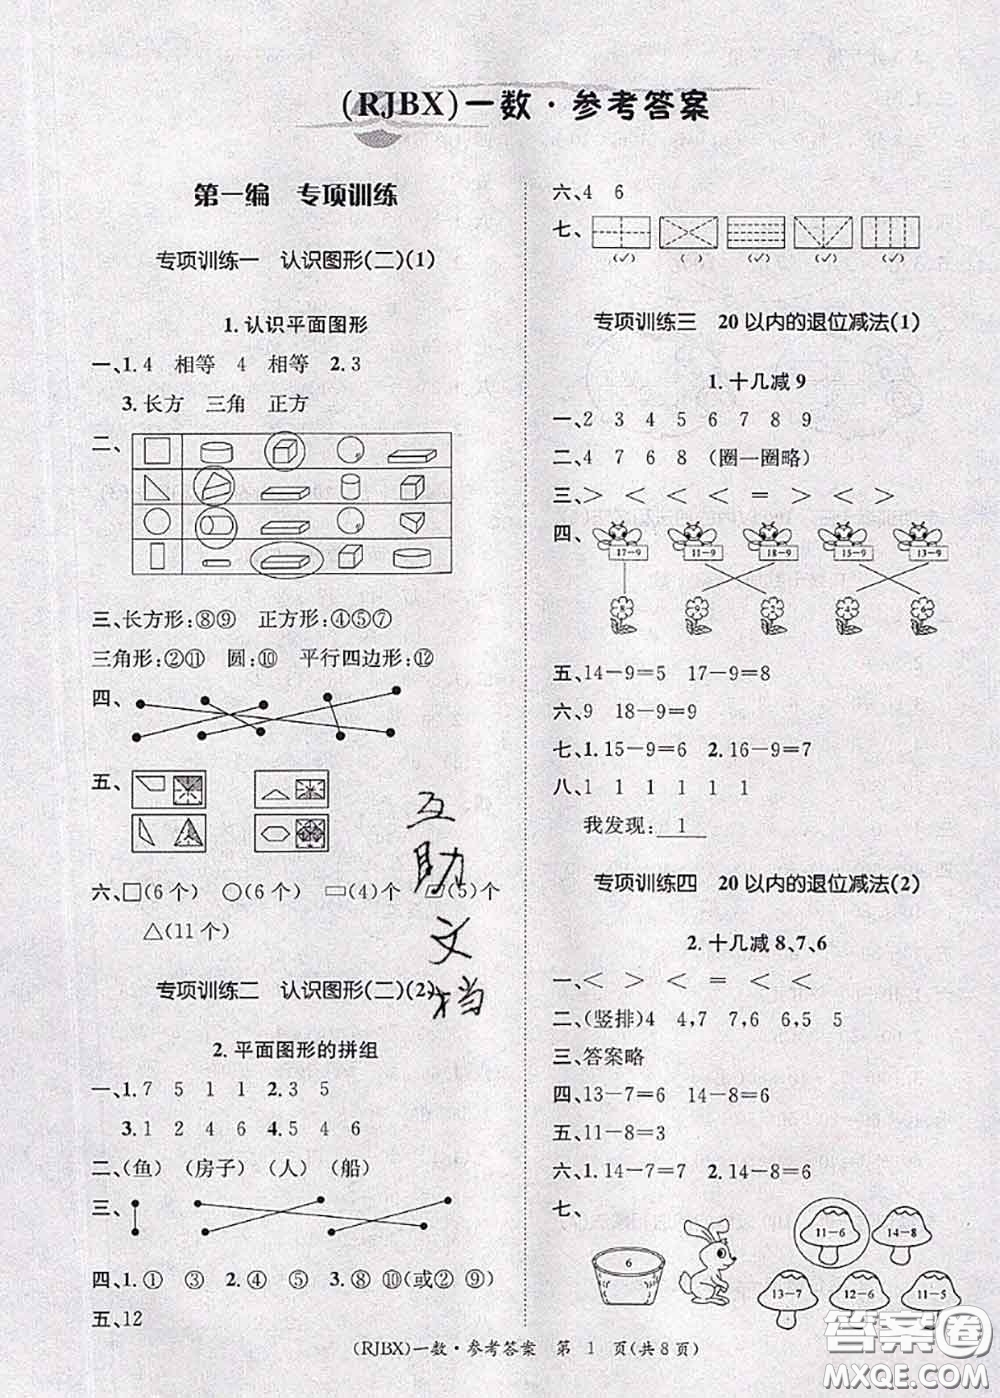 (RJBX)一数·参考答案
第一编　专项训练
专项训练一　认识图形(二)(1)
1.认识平面图形
一、1.4　相等　4　相等　2.3
3.长方　三角　正方
二、
三、长方形:⑧⑨　正方形:④⑤⑦
三角形:②⑪　圆:⑩　平行四边形:⑫
四、
五、
六、□(6个)　○(6个)　▭(4)个　▱(5)个
△(11个)
专项训练二　认识图形(二)(2)
2.平面图形的拼组
一、1.7　5　1　1　2.3　5
3.1　2　4　6　4.5　4　6
二、(鱼)　(房子)　(人)　(船)
三、
四、1.①　③　2.④　⑤　3.⑧　⑩(或②　⑨)
五、12
六、4　6
七、
(✓)　(✓)　(✓)　(✓)　(✓)
专项训练三　20以内的退位减法(1)
1.十几减9
一、2　3　4　5　6　7　8　9
二、4　7　6　8　(圈一圈略)
三、＞　＜　＜　＜　＝　＞　＜　＜
四、
17-9　11-9　18-9　15-9　13-9
8　9　2　4　6
五、14-9=5　17-9=8
六、9　18-9=9
七、1.15-9=6　2.16-9=7
八、1　1　1　1　1　1
我发现:　1
专项训练四　20以内的退位减法(2)
2.十几减8、7、6
一、＜　＞　＜　＝　＜　＜　＞
二、(竖排)4　4,7　7,6　6,5　5
三、答案略
四、13-7=6　14-8=6
五、11-8=3
六、1.14-7=7　2.14-6=8
七、
6
11-6　14-8
13-7　12-6　11-5
互
助
文
档
(RJBX)一数·参考答案　第　1　页(共8页)
答案圈
MXQE.COM